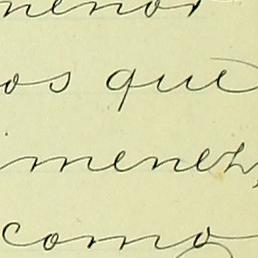 menor
os que
imenez,
como